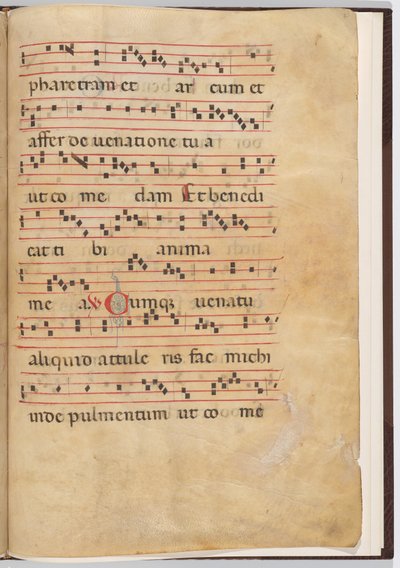 pharetram et ar cum et
affer de venatione tu a
ut co me dam Et benedi
cat ti bi anima
me a ℣ Cumqꝫ venatu
aliquid attule ris fac michi
inde pulmentum ut co me